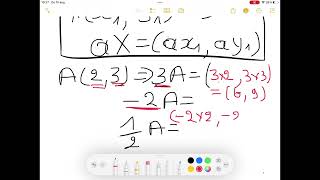 aX=(ax₁, ay₁)
A(2,3) ⇒ 3A = (3x2, 3x3)
= (6, 9)
-2A=
(-2x2, -2
1/2 A=